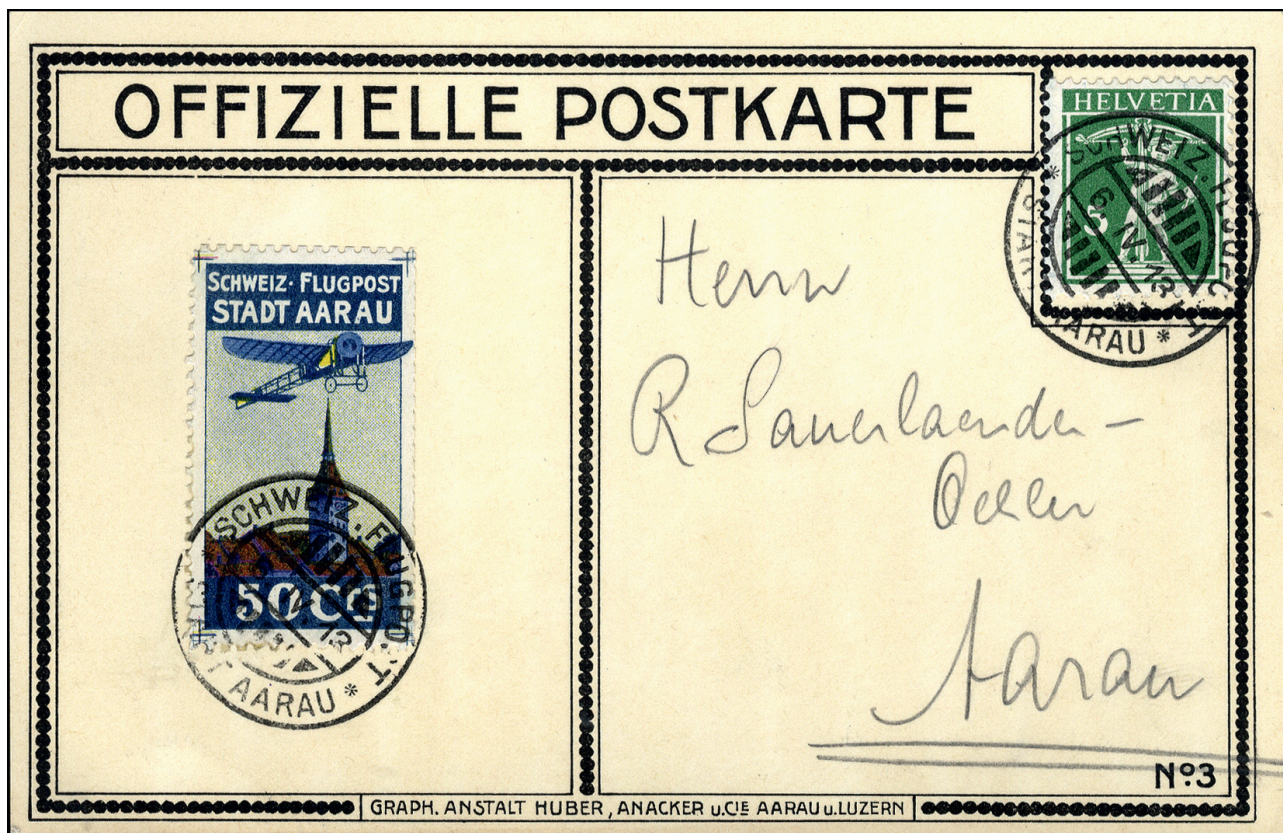 OFFIZIELLE POSTKARTE
HELVETIA
5
SCHWEIZ. FLUGPOST
6 IV. 13
* START AARAU *
SCHWEIZ · FLUGPOST
STADT AARAU
50 Cs
SCHWEIZ. FLUGPOST
6 IV. 13
* START AARAU *
Herrn
R Sauerlaender-
Aarau
Nº 3
GRAPH. ANSTALT HUBER, ANACKER u. CIE AARAU u. LUZERN